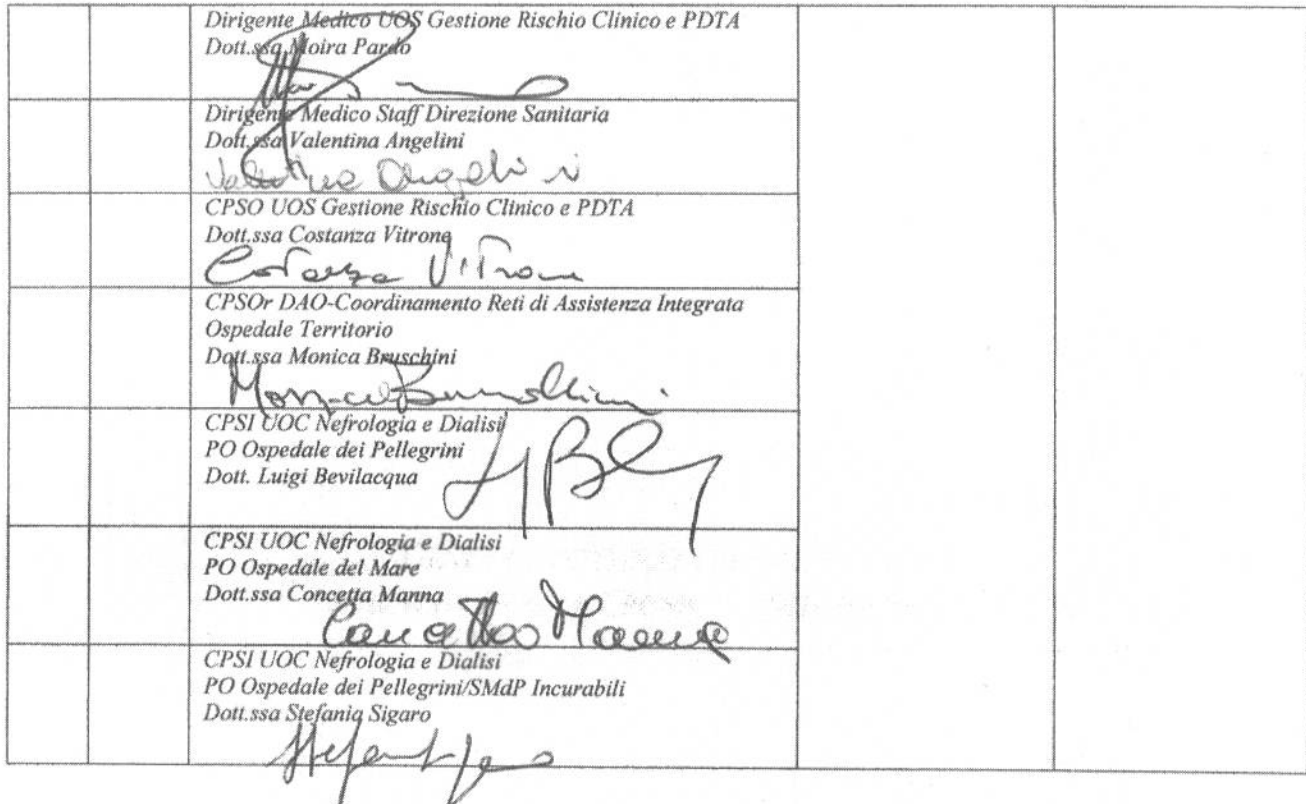 Dirigente Medico UOS Gestione Rischio Clinico e PDTA
Dott.ssa Moira Pardo
Dirigente Medico Staff Direzione Sanitaria
Dott.ssa Valentina Angelini
Valentina Angelini
CPSO UOS Gestione Rischio Clinico e PDTA
Dott.ssa Costanza Vitrone
Costanza Vitrone
CPSOr DAO-Coordinamento Reti di Assistenza Integrata
Ospedale Territorio
Dott.ssa Monica Bruschini
Monica Bruschini
CPSI UOC Nefrologia e Dialisi
PO Ospedale dei Pellegrini
Dott. Luigi Bevilacqua
CPSI UOC Nefrologia e Dialisi
PO Ospedale del Mare
Dott.ssa Concetta Manna
Concetta Manna
CPSI UOC Nefrologia e Dialisi
PO Ospedale dei Pellegrini/SMdP Incurabili
Dott.ssa Stefania Sigaro